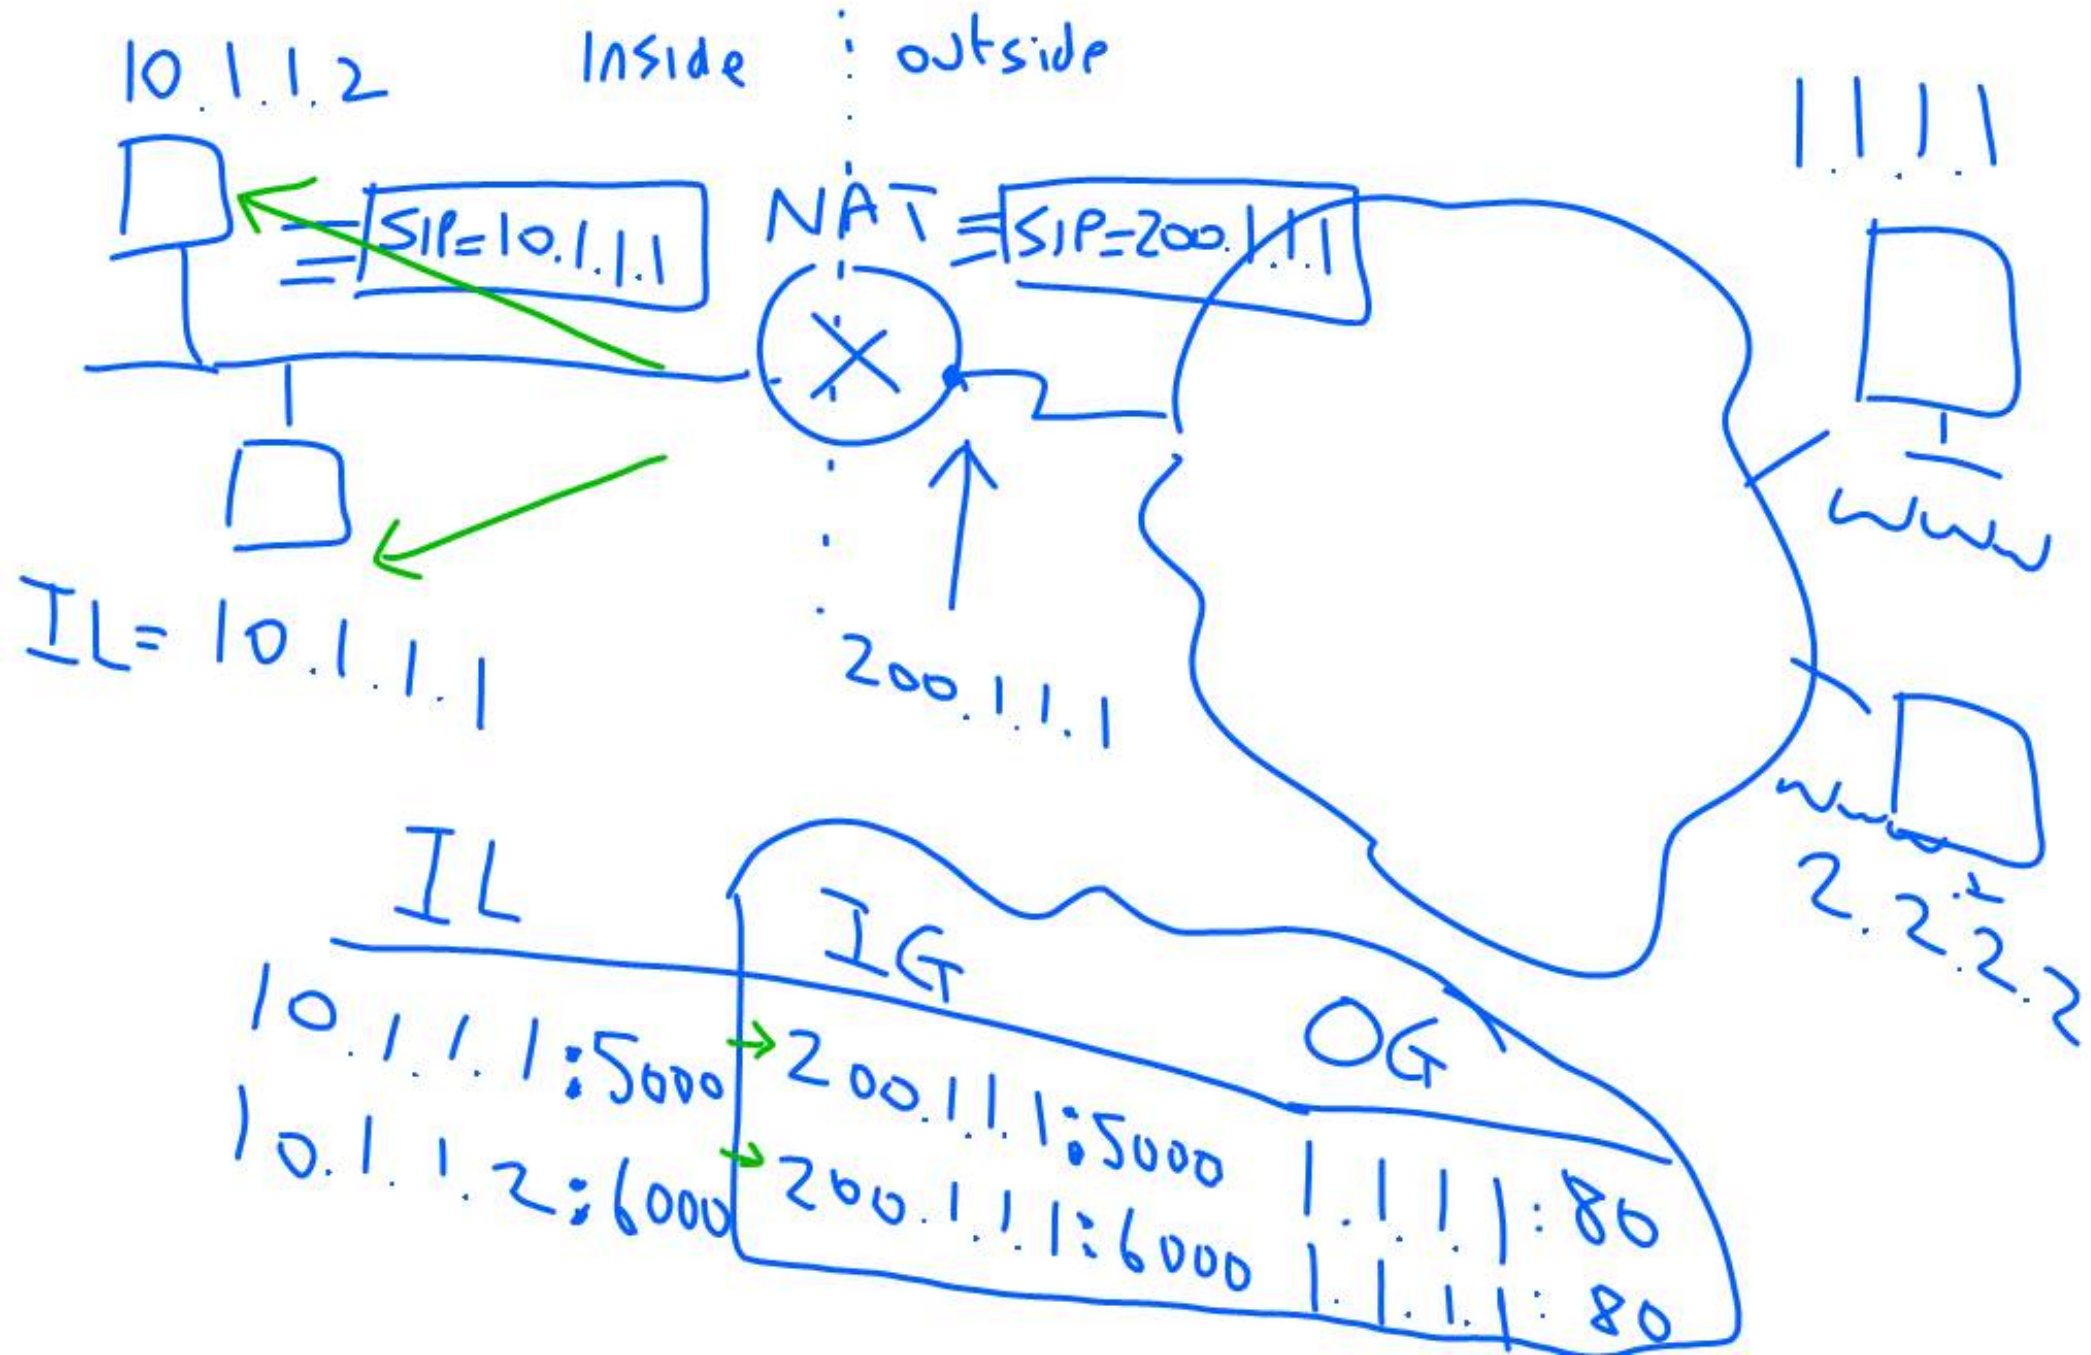 10.1.1.2
Inside
outside
1.1.1.1
SIP=10.1.1.1
NAT
SIP=200.1.1.1
www
IL= 10.1.1.1
200.1.1.1
www
2.2.2.2
IL
IG
OG
10.1.1.1:5000 200.1.1.1:5000 1.1.1.1:80
10.1.1.2:6000 200.1.1.1:6000 1.1.1.1:80